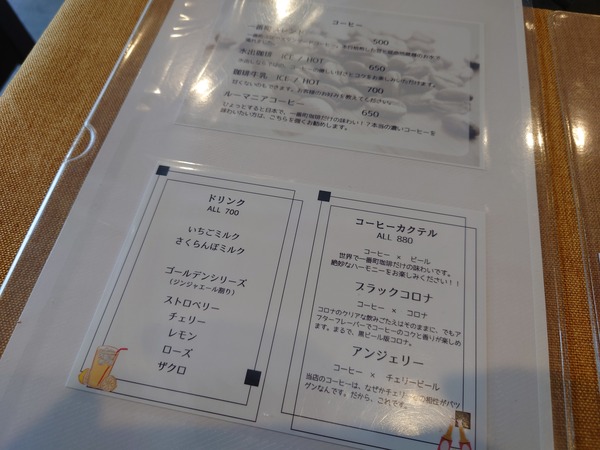 コーヒー
一番町
500
水出珈琲 ICE / HOT
650
珈琲牛乳 ICE / HOT
700
甘くないのもできます。お客様のお好みを教えてください。
ルーマニアコーヒー
650
ひょっとすると日本で、一番町珈琲だけの味わい！？本当の濃いコーヒーを
味わいたい方は、こちらを強くお勧めします。
ドリンク
ALL 700
いちごミルク
さくらんぼミルク
ゴールデンシリーズ
(ジンジャエール割り)
ストロベリー
チェリー
レモン
ローズ
ザクロ
コーヒーカクテル
ALL 880
コーヒー × ビール
世界で一番町珈琲だけの味わいです。
絶妙なハーモニーをお楽しみください！！
ブラックコロナ
コーヒー × コロナ
コロナのクリアな飲みごたえはそのままに、でもア
フターフレーバーでコーヒーのコクと香りが楽しめ
ます。まるで、黒ビール版コロナ。
アンジェリー
コーヒー × チェリービール
当店のコーヒーは、なぜかチェリーとの相性がバツ
グンなんです。だから、これです。